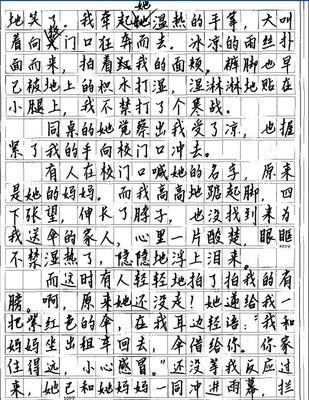 地笑了。我牵起她温热的手掌,大叫
着向校门口狂奔而去。冰凉的雨丝扑
面而来,拍着我的面颊。裤脚也早
已被地上的积水打湿,湿淋淋地贴在
小腿上,我不禁打了个寒战。
同桌的她觉察出我受了凉,也握
紧了我的手向校门口冲去。
有人在校门口喊她的名字,原来
是她的妈妈。而我高高地踮起脚,四
下张望,伸长了脖子,也没找到来为
我送伞的家人,心里一片酸楚,眼眶
不禁湿热了,隐隐地浮上泪来。
而这时有人轻轻地拍了拍我的肩
膀。啊,原来她还没走!她递给我一
把紫红色的伞,在我耳边轻语:“我和
妈妈坐出租车回去,伞借给你。你家
住得远,小心感冒。”还没等我反应过
来,她已和她妈妈一同冲进雨幕,拦